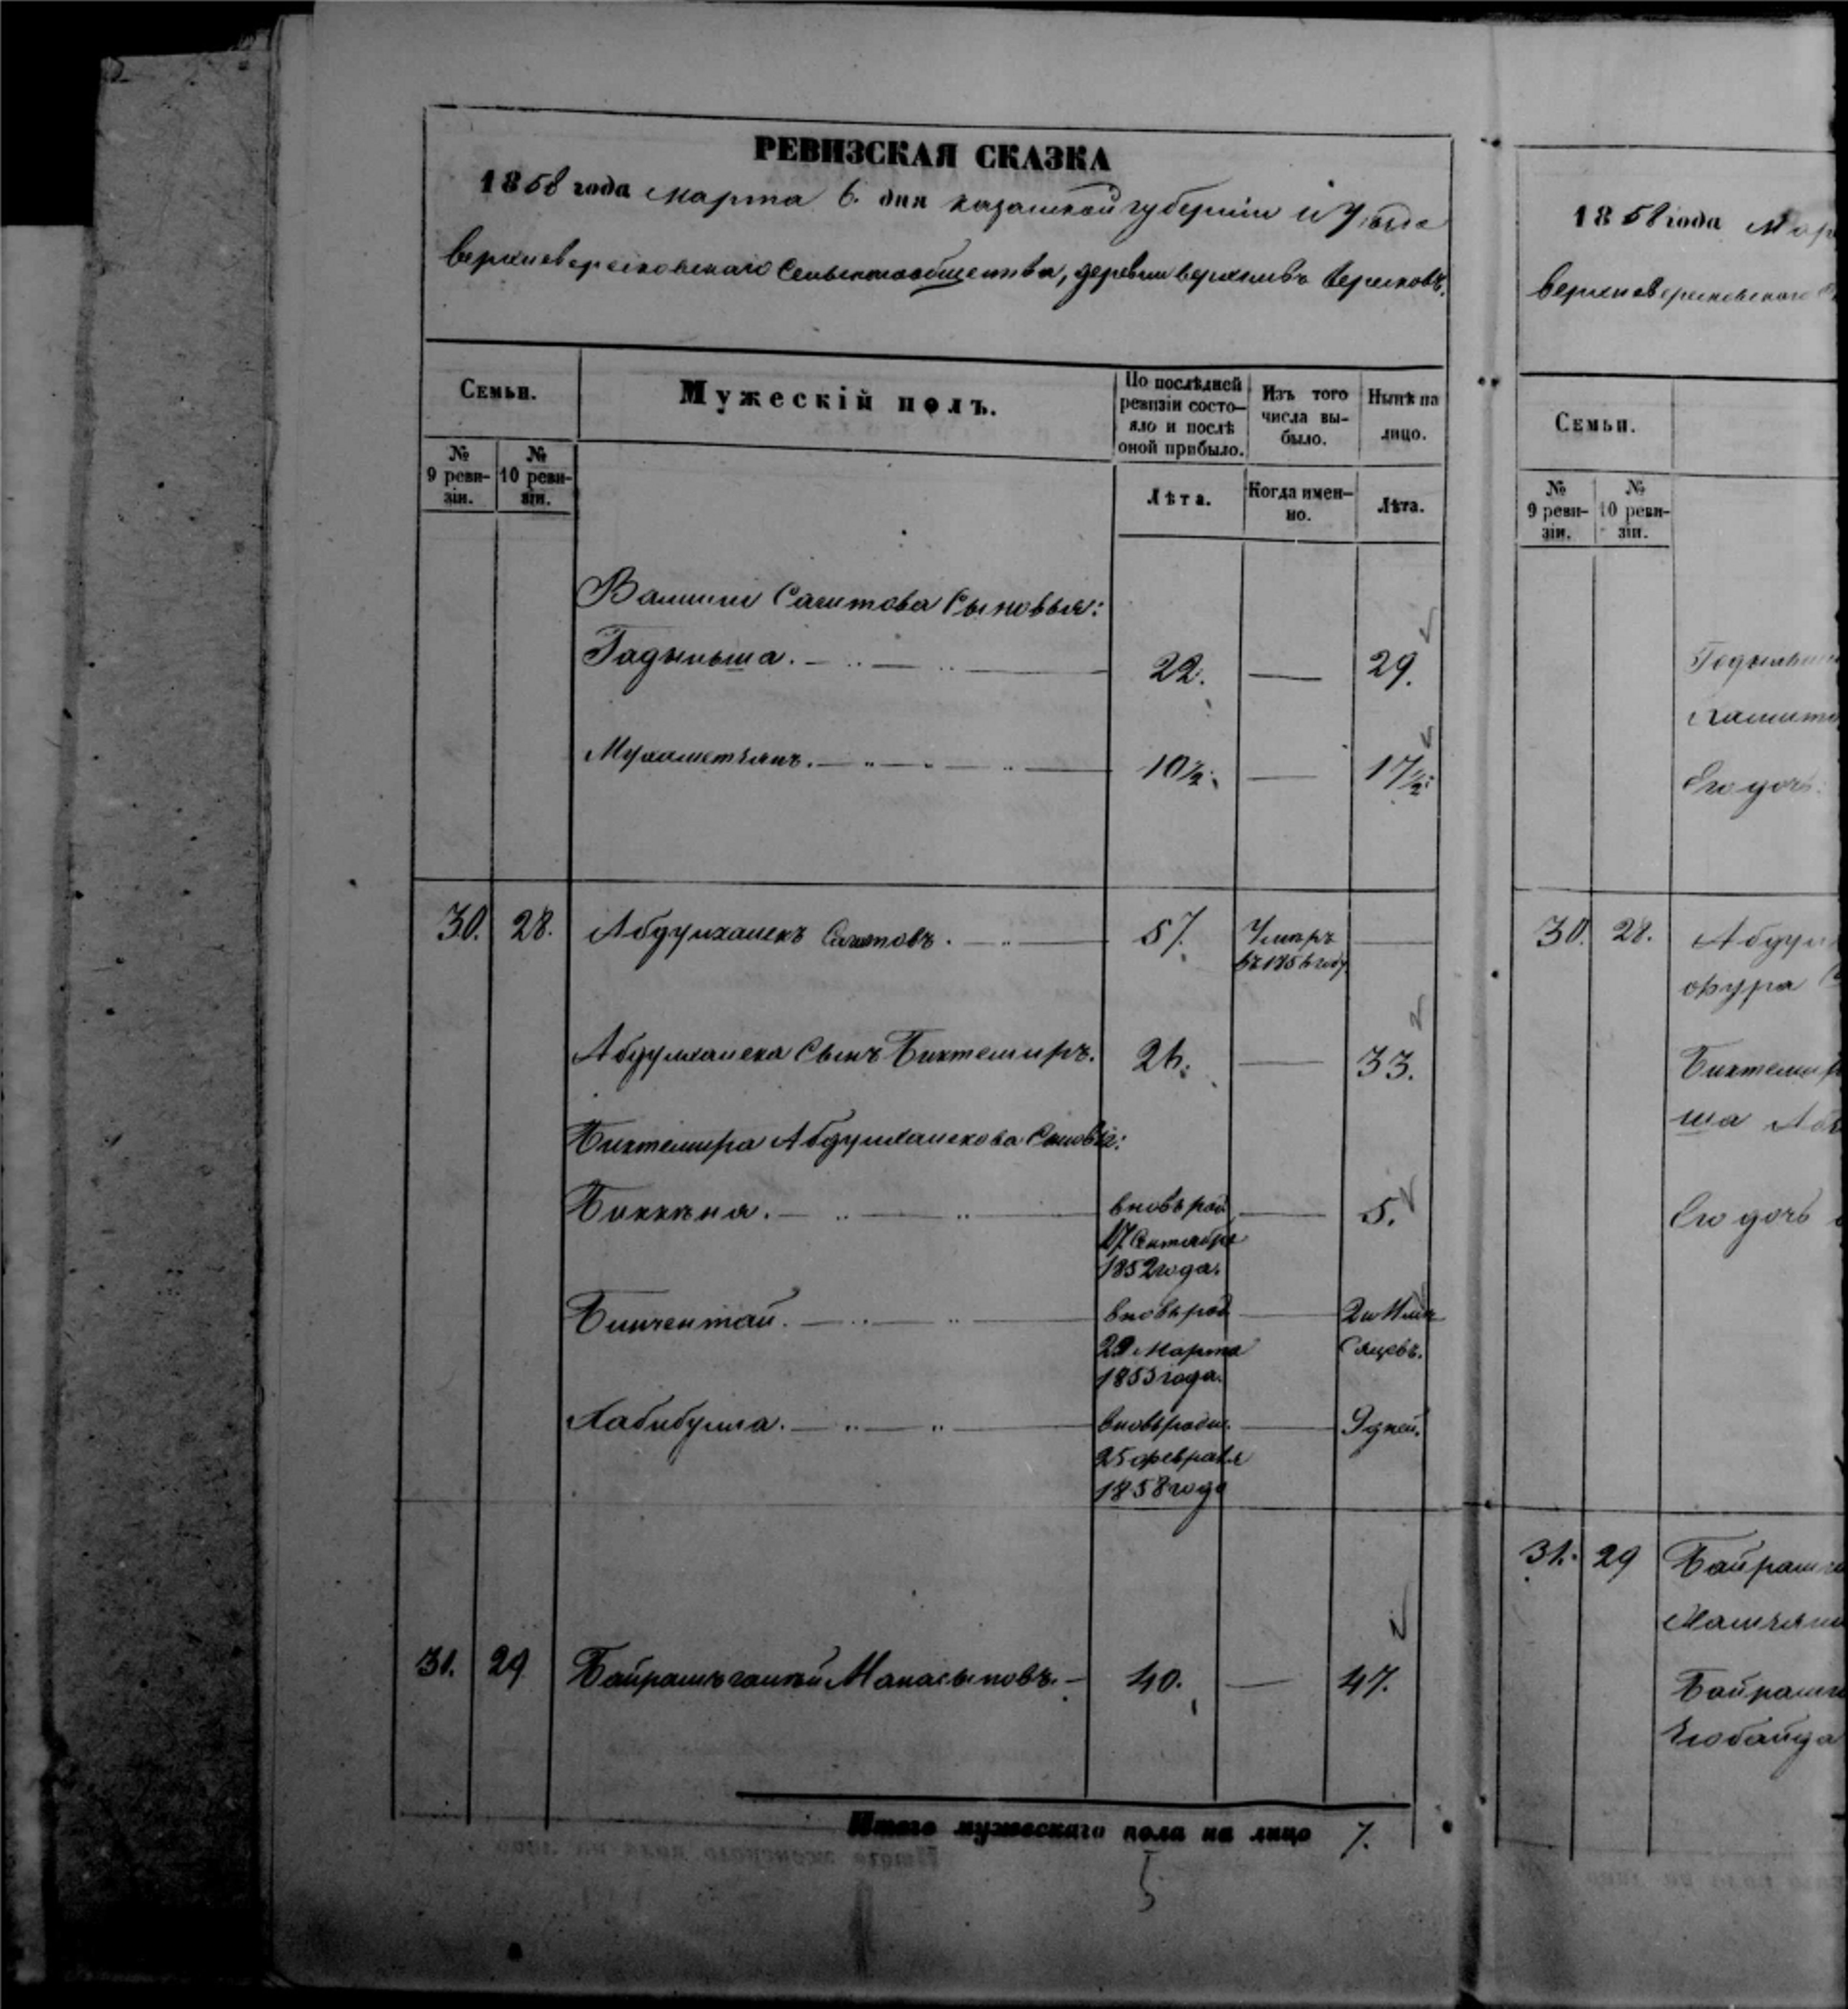 РЕВИЗСКАЯ СКАЗКА
1858 года марта 6. дня казанской губернии и Уезда
верхневересковскаго Сельскаго общества, деревни верхнихъ Вересковъ.
Семьи.
Мужескій полъ.
По послѣдней ревизіи состо-
яло и послѣ
оной прибыло.
Изъ того
числа вы-
было.
Нынѣ на
лицо.
№
9 реви-
зіи.
№
10 реви-
зіи.
Лѣта.
Когда имен-
но.
Лѣта.
Сагитова Сыновья:
Гадыльша. 22. — 29.
Мухаметзянъ. 10½. — 17½.
30. 28. Абдулханекъ Сагитовъ. 57. Умеръ —
въ 1856 году
Абдулханека Сынъ Биктемиръ. 26. — 33.
Биктемира Абдулханекова Сыновья:
Биккѣня. вновь род. — 5.
17 Сентября
1852 года.
вновь род. —
Марта
сяцевъ.
года.
Хабибулла. вновь родил. — 9 дней.
25 февраля
1858 года
31. 29 40. — 47.
Итого мужескаго пола на лицо 7.
5
1858 года Мар
верхневересковскаго
Семьи.
№
9 реви-
зіи.
№
10 реви-
зіи.
Его дочь.
30. 28. Абдул
Биктемир
ша Аб
Его дочь
31. 29 Байрам
Байрам